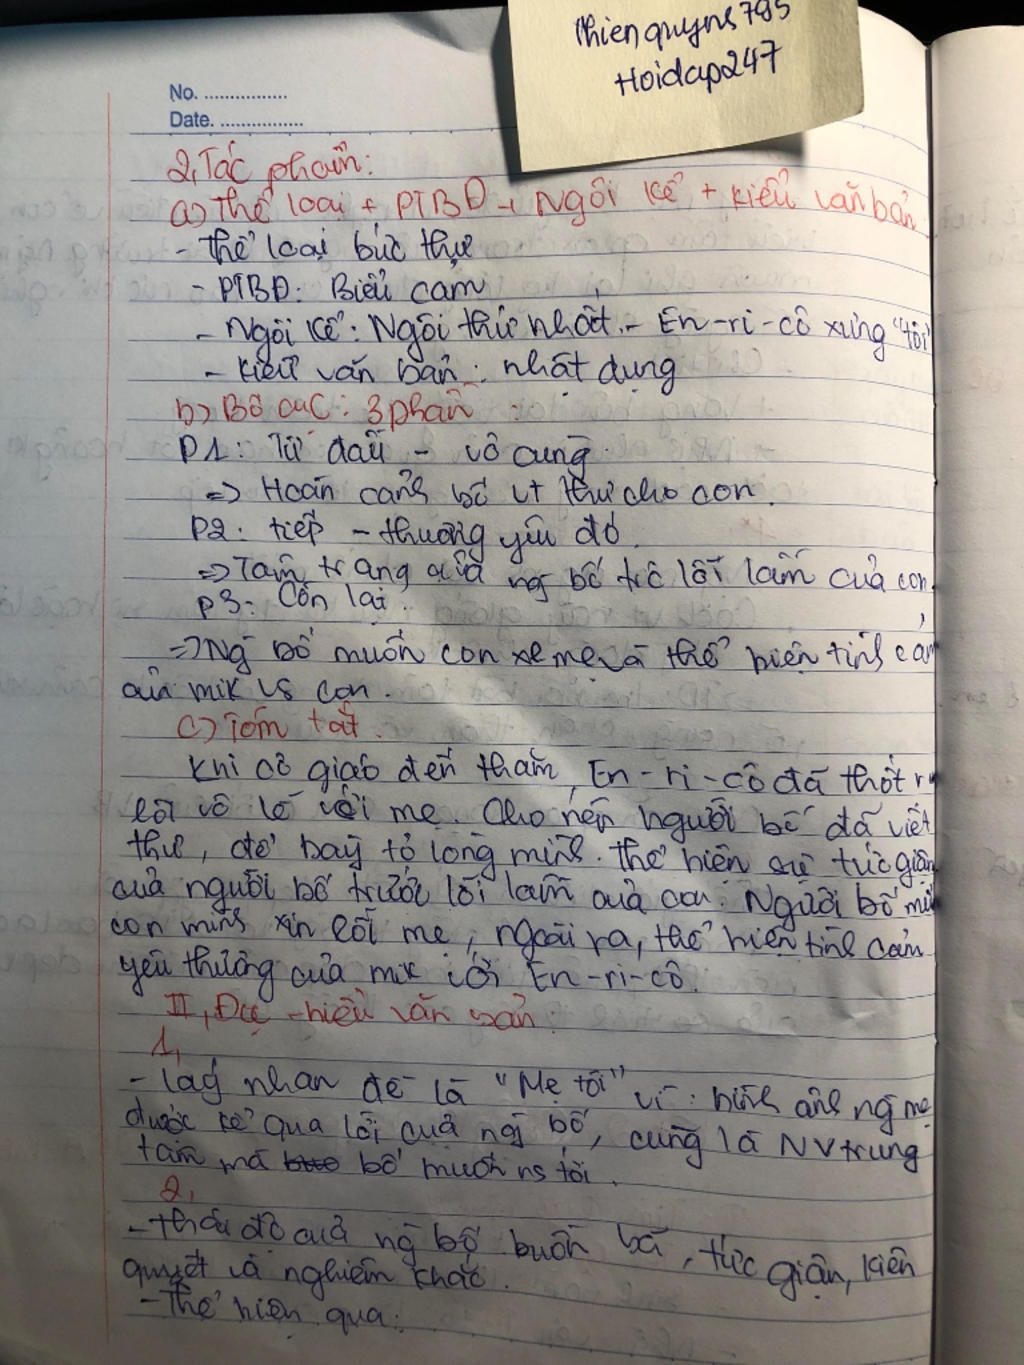 thienquyns795
Hoidap247
No. ................
Date. ................
2, Tác phẩm:
a) Thể loại + PTBĐ + Ngôi kể + kiểu văn bản
- Thể loại bức thư
- PTBĐ: Biểu cảm
- Ngôi kể: Ngôi thứ nhất - En-ri-cô xưng "tôi"
- Kiểu văn bản: nhật dụng
b) Bố cục: 3 phần :
P1: Từ đầu - vô cùng
=> Hoàn cảnh bố vt thư cho con.
P2: tiếp - thương yêu đó
=> Tâm trạng của ng bố trc lỗi lầm của con.
P3: Còn lại.
=> Ng bố muốn con xl mẹ và thể hiện tình cảm
của mik vs con.
c) Tóm tắt.
Khi cô giáo đến thăm, En-ri-cô đã thốt ra
lời vô lễ với mẹ. Cho nên người bố đã viết
thư, để bày tỏ lòng mình. Thể hiện sự tức giận
của người bố trước lỗi lầm của con. Người bố
con mình xin lỗi mẹ, ngoài ra, thể hiện tình cảm
yêu thương của mik với En-ri-cô.
II, Đọc - hiểu văn bản:
1,
- Lấy nhan đề là "Mẹ tôi" vì: hình ảnh ng mẹ
được kể qua lời của ng bố, cũng là NV trung
tâm mà bố muốn ns tới.
2,
- Thái độ của ng bố buồn bã, tức giận, kiên
quyết và nghiêm khắc.
- Thể hiện qua: